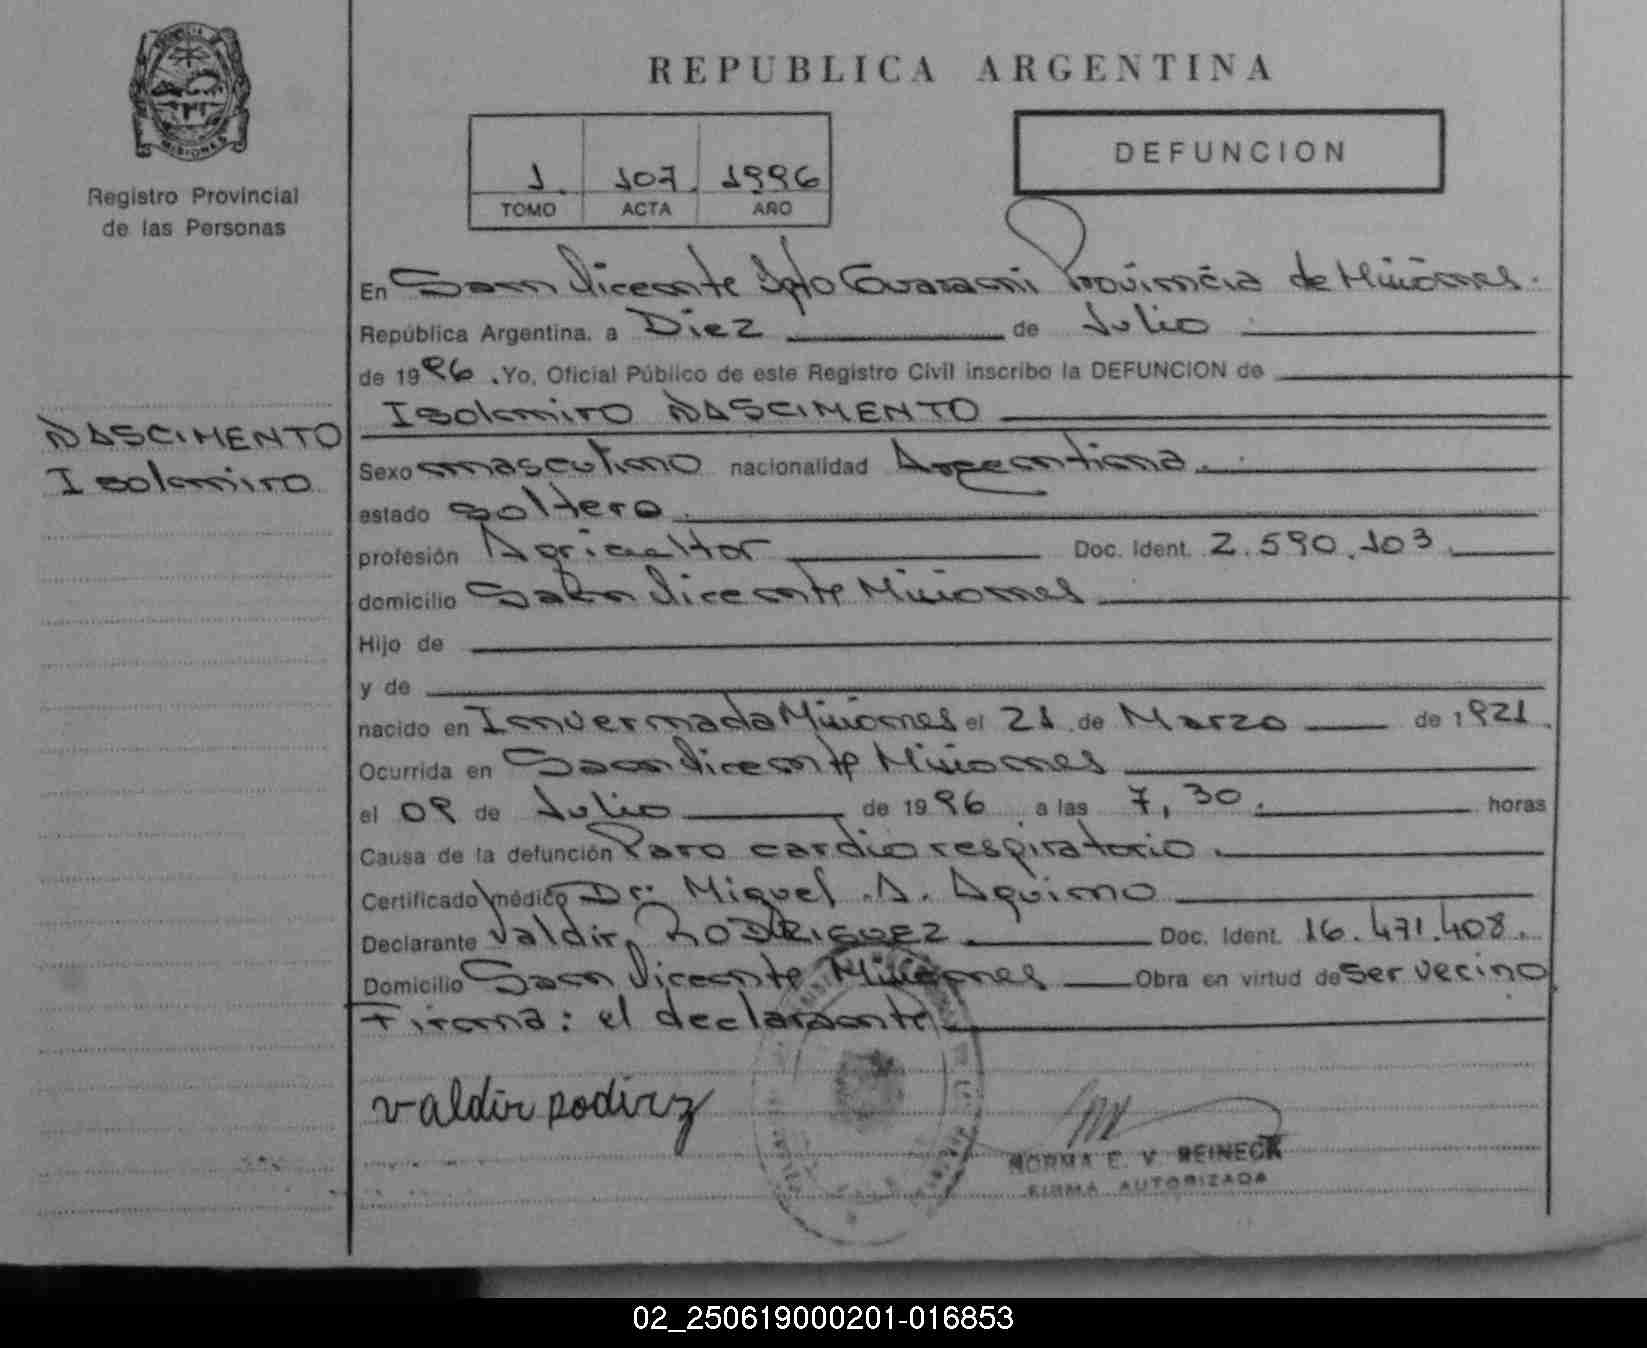 REPUBLICA ARGENTINA
DEFUNCION
1. 107. 1996
TOMO ACTA AÑO
MISIONES
Registro Provincial
de las Personas
NASCIMENTO
Isolomiro
En San Vicente Dpto Guarani Provincia de Misiones.
República Argentina, a Diez de Julio
de 1996. Yo, Oficial Público de este Registro Civil inscribo la DEFUNCION de
Isolomiro NASCIMENTO
Sexo masculino nacionalidad Argentina.
estado soltero.
profesión Agricultor Doc. Ident. 2.590.103
domicilio San Vicente Misiones
Hijo de
y de
nacido en Invernada Misiones el 21 de Marzo de 1921.
Ocurrida en San Vicente Misiones
el 09 de Julio de 1996 a las 7,30. horas
Causa de la defunción Paro cardio respiratorio.
Certificado médico Dr. Miguel A. Aquino
Declarante Valdir, RODRIGUEZ Doc. Ident. 16.471.408.
Domicilio San Vicente Misiones Obra en virtud de ser vecino
Firma: el declarante
valdir rodirz
NORMA E. V. REINECK
FIRMA AUTORIZADA
02_250619000201-016853